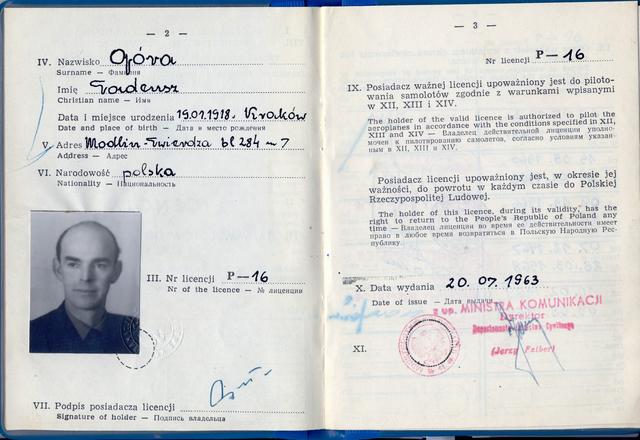 — 2 —
IV. Nazwisko Góra
Surname — Фамилия
Imię Tadeusz
Christian name — Имя
Data i miejsce urodzenia 19.01.1918. Kraków
Date and place of birth — Дата и место рождения
V. Adres Modlin-Twierdza bl 284 m 7
Address — Адрес
VI. Narodowość polska
Nationality — Национальность
III. Nr licencji P—16
Nr of the licence — № лицензии
VII. Podpis posiadacza licencji
Signature of holder — Подпись владельца
— 3 —
Nr licencji P—16
IX. Posiadacz ważnej licencji upoważniony jest do piloto-
wania samolotów zgodnie z warunkami wpisanymi
w XII, XIII i XIV.
The holder of the valid licence is authorized to pilot the
aeroplanes in accordance with the conditions specified in XII,
XIII and XIV — Владелец действительной лицензии уполно-
мочен к пилотированию самолетов, согласно условиям указан-
ным в XII, XIII и XIV.
Posiadacz licencji upoważniony jest, w okresie jej
ważności, do powrotu w każdym czasie do Polskiej
Rzeczypospolitej Ludowej.
The holder of this licence, during its validity, has the
right to return to the People's Republic of Poland any
time — Владелец лицензии во время ее действительности имеет
право в любое время возвратиться в Польскую Народную Рес-
публику.
X. Data wydania 20.07.1963
Date of issue — Дата выдачи
z up. MINISTRA KOMUNIKACJI
Dyrektor
Departamentu Lotnictwa Cywilnego
XI.
(Jerzy Felber)